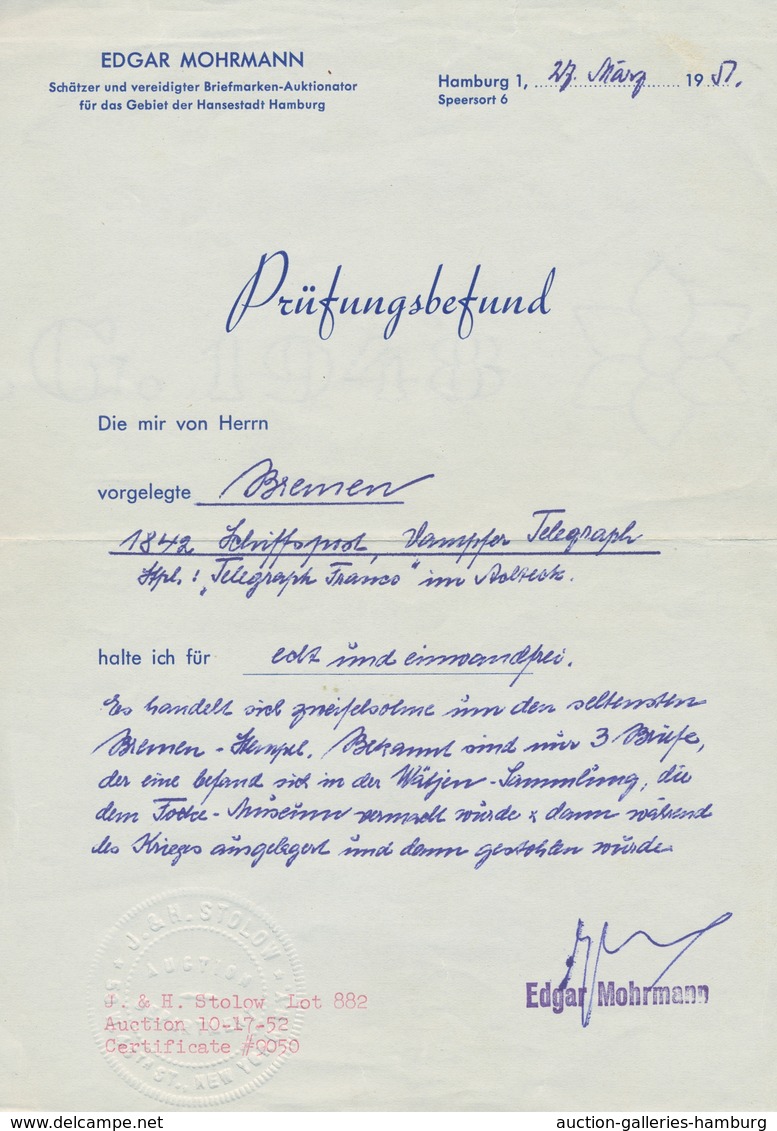 EDGAR MOHRMANN
Schätzer und vereidigter Briefmarken-Auktionator
für das Gebiet der Hansestadt Hamburg
Hamburg 1, 27. März 1951.
Speersort 6
Prüfungsbefund
Die mir von Herrn
vorgelegte Bremen
1842 Schiffspost, Dampfer Telegraph
Stpl: "Telegraph Franco" im Achteck.
halte ich für echt und einwandfrei.
Es handelt sich zweifelsohne um den seltensten
Bremen-Stempel. Bekannt sind nur 3 Briefe,
der eine befand sich in der Wätjen-Sammlung, die
dem Focke-Museum vermacht wurde & dann während
des Krieges ausgelagert und dann gestohlen wurde.
J. & H. STOLOW
AUCTION
ST., NEW YORK
J. & H. Stolow Lot 882
Auction 10-17-52
Certificate #0050
Edgar Mohrmann
www.delcampe.net
auction-galleries-hamburg